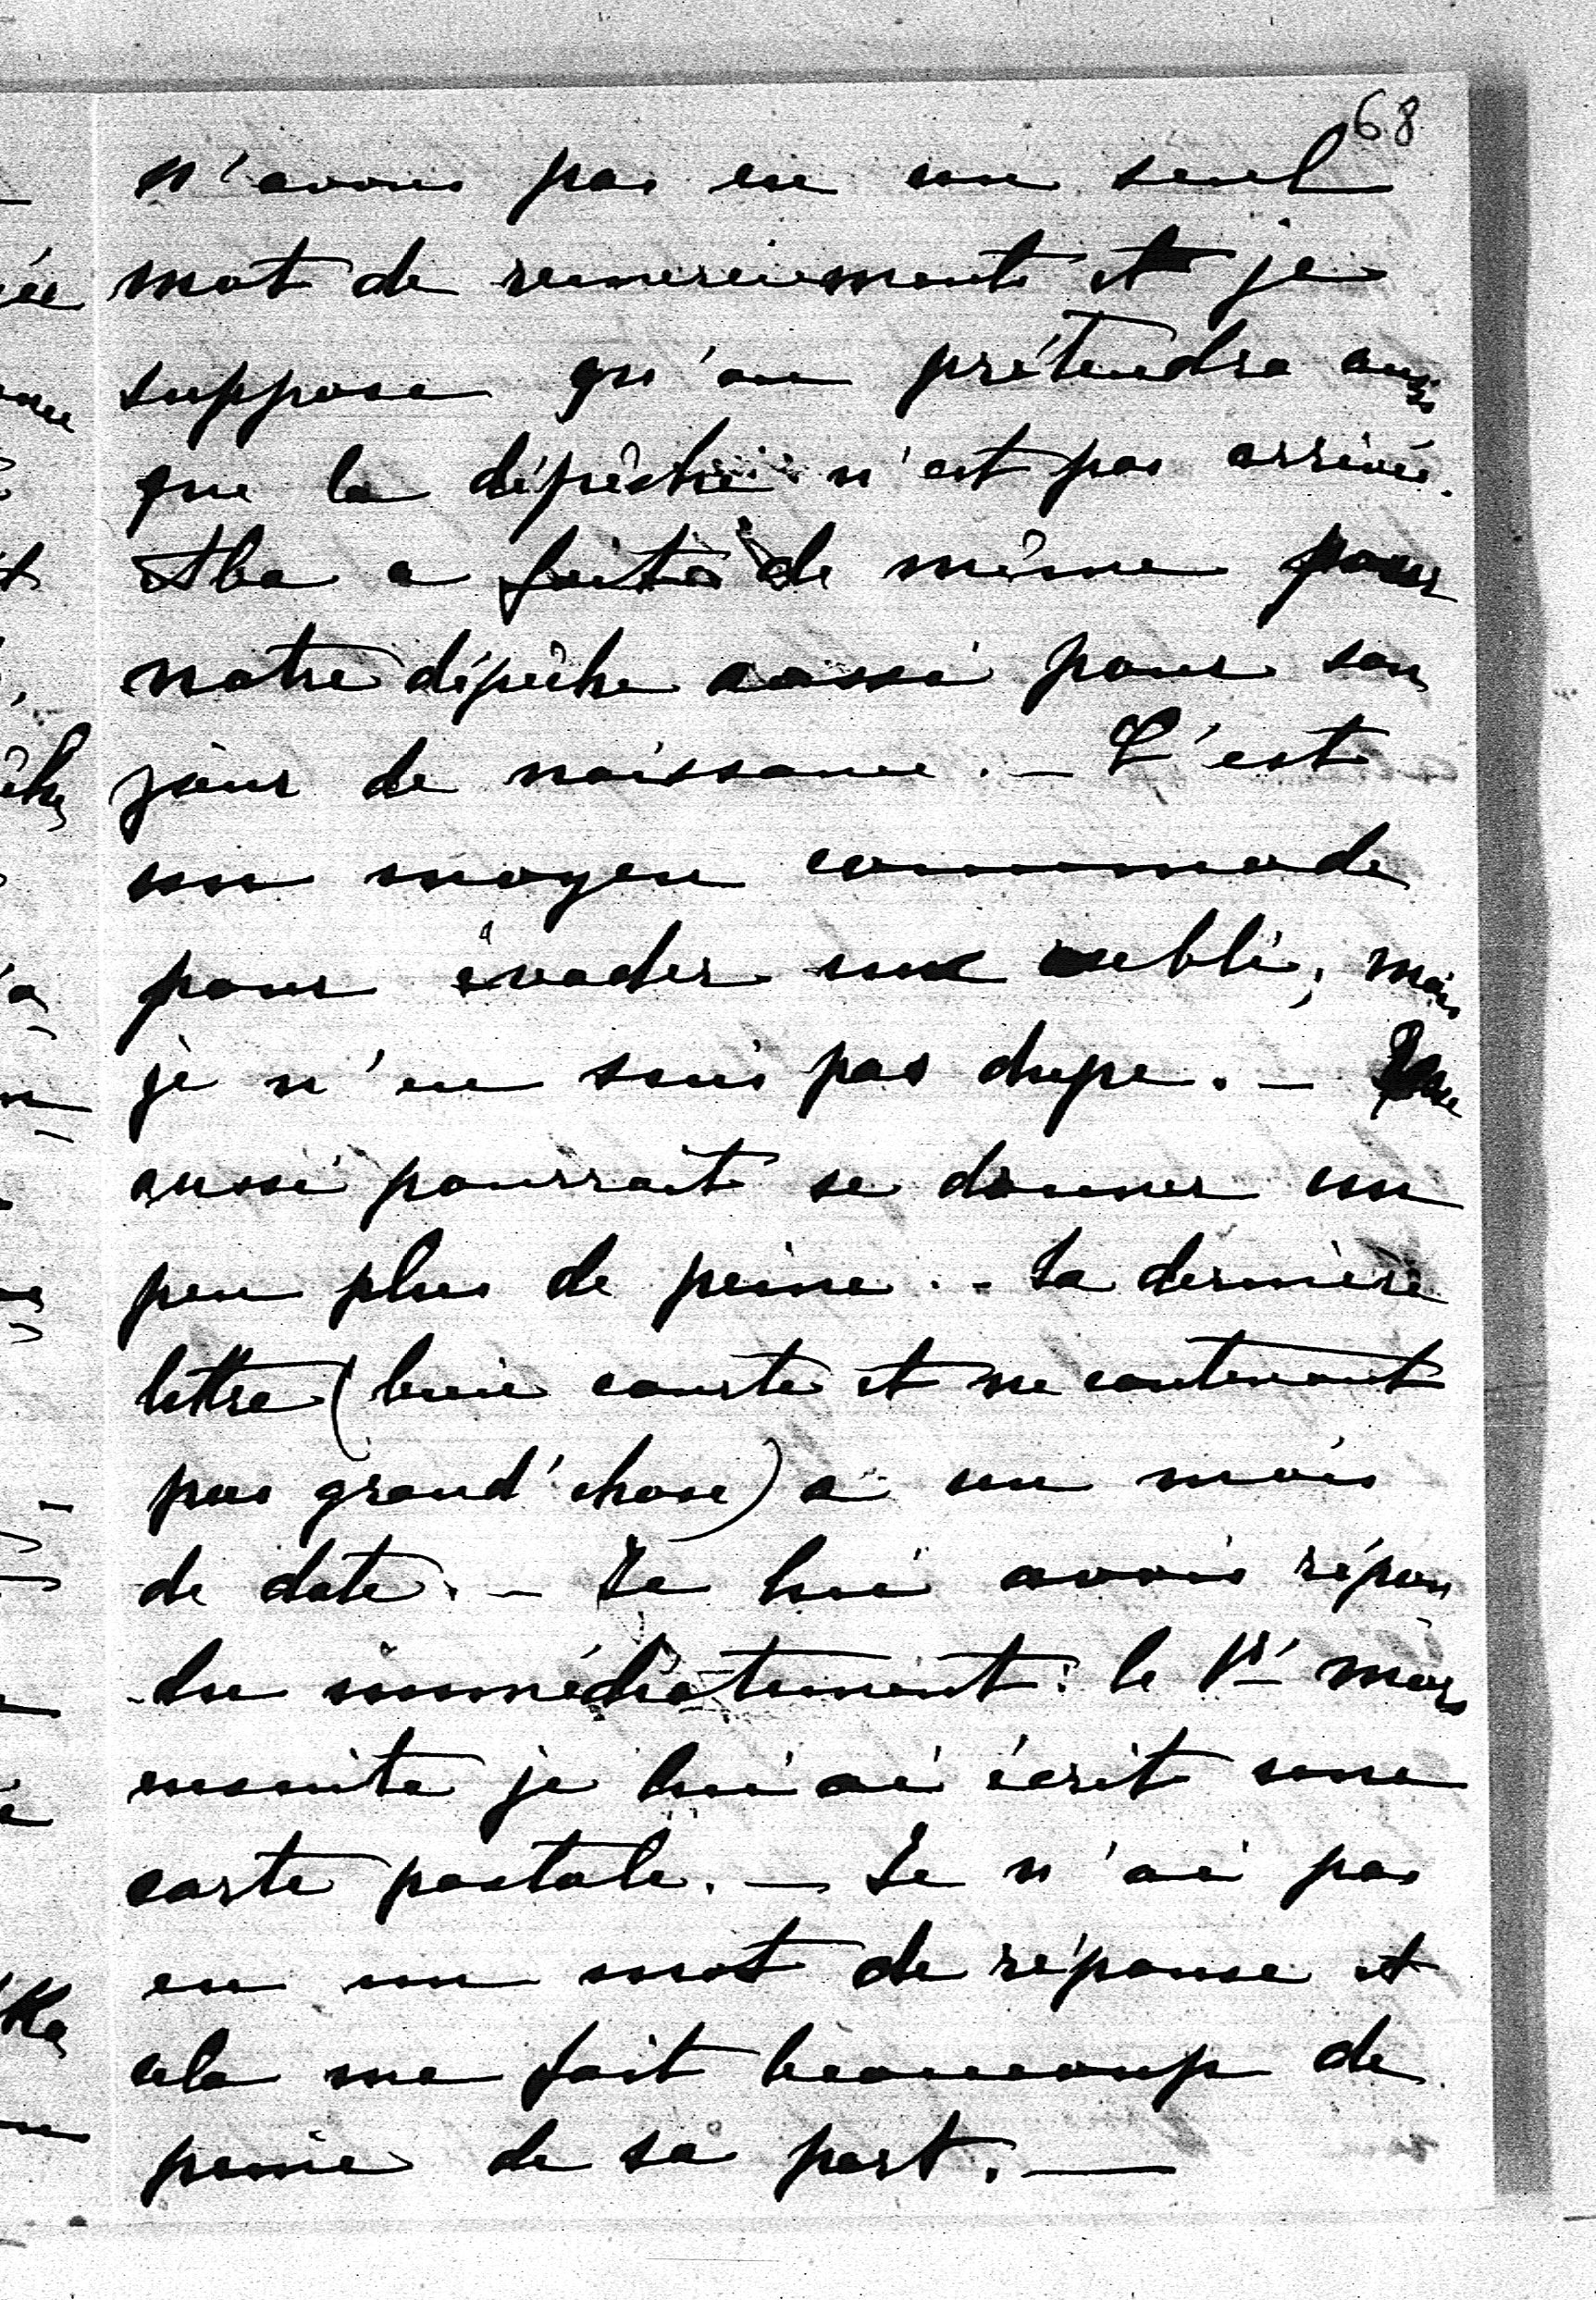 68
n'avons pas eu un seul
mot de remerciements et je
suppose qu'on prétendra aussi
que la dépêche n'est pas arrivée.
Aba a fait de même pour
notre dépêche aussi pour son
jour de naissance. — C'est
un moyen commode
pour évader un oubli; mais
je n'en suis pas dupe. —
aussi pourrait se donner un
peu plus de peine. - Sa dernière
lettre (bien courte et ne contenant
pas grand'chose) a un mois
de date. — Je lui avais répon
du immédiatement: le 1er mars
ensuite je lui ai écrit une
carte postale. — Je n'ai pas
eu un mot de réponse et
cela me fait beaucoup de
peine de sa part. —